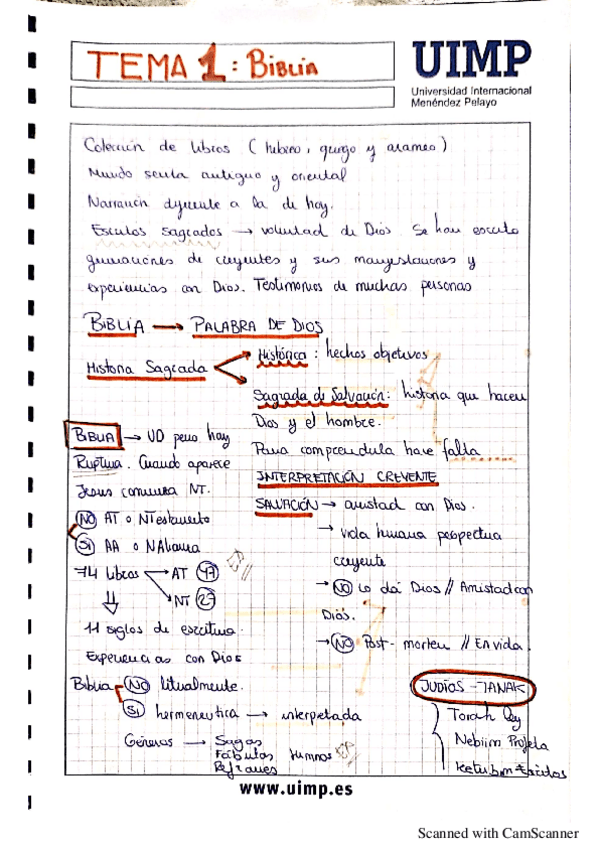 TEMA 1: BIBLIA
UIMP
Universidad Internacional
Menéndez Pelayo
Colección de libros (hebreo, griego y arameo)
Mundo semita antiguo y oriental
Narración diferente a la de hoy.
Escritos sagrados → voluntad de Dios. Se han escrito
generaciones de creyentes y sus manifestaciones y
experiencias con Dios. Testimonios de muchas personas
BIBLIA → PALABRA DE DIOS
Historia Sagrada
Histórica: hechos objetivos
Sagrada de Salvación: historia que hacen
Dios y el hombre.
Para comprenderla hace falta
INTERPRETACIÓN CREYENTE
SALVACIÓN → amistad con Dios.
→ vida humana perspectiva
creyente
→ NO lo dá Dios // Amistad con
Dios.
→ NO Post-mortem // En vida.
BIBLIA → UD pero hay
Ruptura. Cuando aparece
Jesus comienza NT.
NO AT o NTestamento
SI AA o NAlianza
74 libros → AT 47
→ NT 27
11 siglos de escritura.
Experiencias con Dios
Biblia NO literalmente.
SI hermeneutica → interpretada
Géneros → Sagas
Fábulas Himnos
Refranes
JUDÍOS - TANAK
Torah Ley
Nebiim Profeta
Ketubim Escritos
www.uimp.es
Scanned with CamScanner